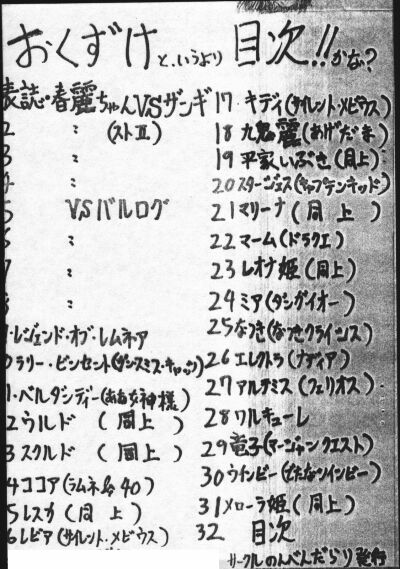 おくずけ と、いうより 目次!! かな?
表誌・春麗ちゃんVSザンギ
2 〃 (ストⅡ)
3 〃
4 〃
5 VSバルログ
6 〃
7 〃
8
9・レジェンド・オブ・レムネア
0 ラリー・ビンセント(ダンスミス・キャッツ)
1・ベルダンディー(ああ女神様)
2 ウルド (同上)
3 スクルド (同上)
4 ココア(ラムネ&40)
5 レスカ(同上)
6 レビア(サイレント・メビウス)
17 キディ(サイレント・メビウス)
18 九鬼麗(あげだま)
19 平家いぶき(同上)
20 スタージェス(キャプテンキッド)
21 マリーナ(同上)
22 マーム(ドラクエ)
23 レオナ姫(同上)
24 ミア(ダンガイオー)
25 なつき(なつきクライシス)
26 エレクトラ(ナディア)
27 アルテミス(フェリオス)
28 ワルキューレ
29 竜子(マージャンクエスト)
30 ウインビー(出たなツインビー)
31 メローラ姫(同上)
32 目次
サークルのんべんだらり発行